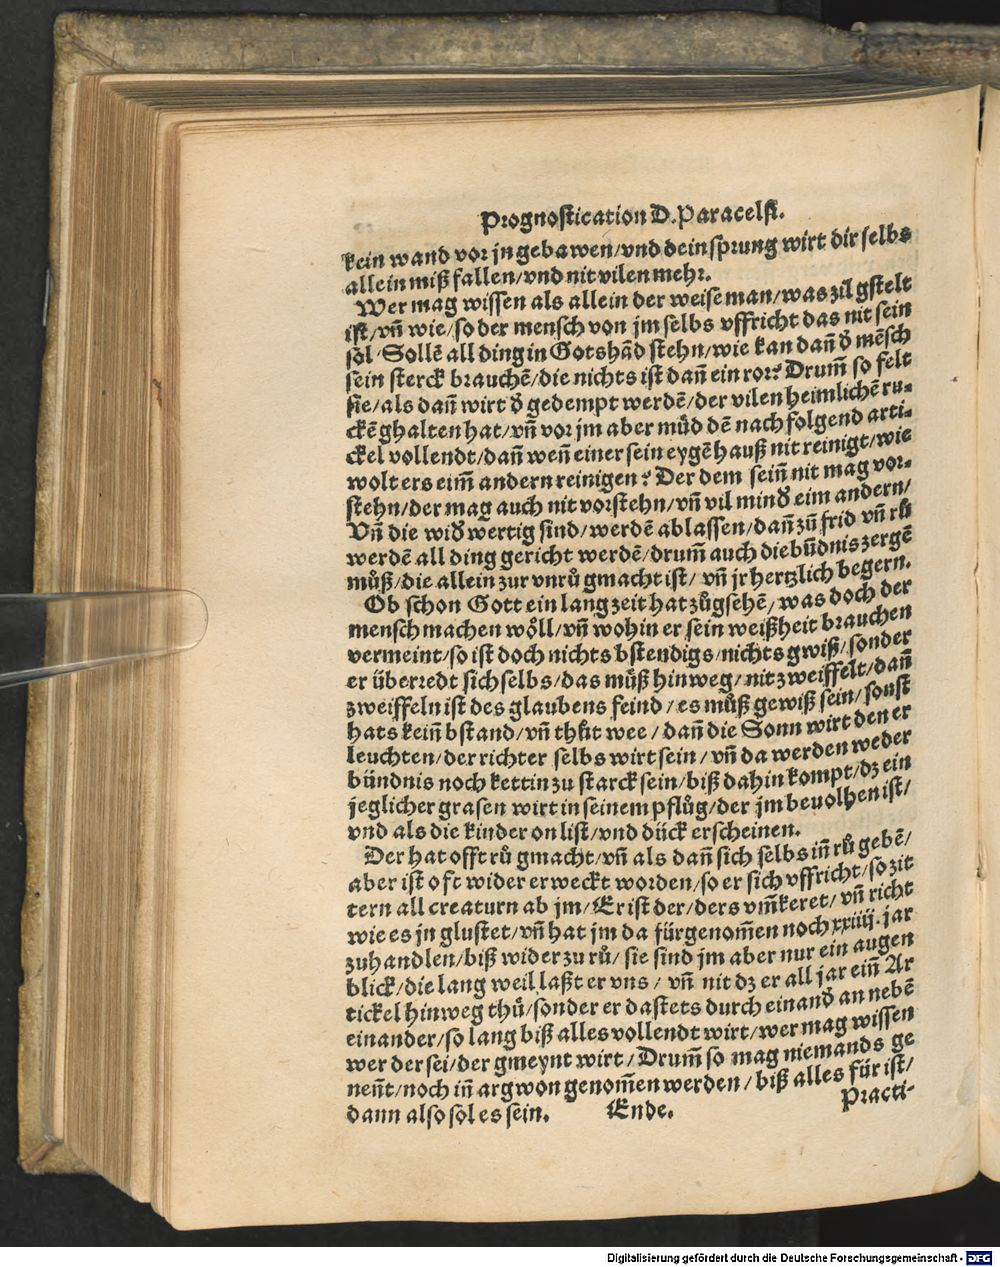 Prognostication D. Paracelsi.
kein wand vor jn gebawen/vnd dein sprung wirt dir selbs
allein miß fallen/vnd nit vilen mehr.
Wer mag wissen als allein der weise man/was zil gstelt
ist/vñ wie/so der mensch von jm selbs vffricht das nit sein
sol. Sollē all ding in Gots hād stehn/wie kan dañ d̕ mēsch
sein sterck brauchē/die nichts ist dañ ein ror? Drum̄ so felt
sie/als dañ wirt d̕ gedempt werdē/der vilen heimlichē ru-
ckē ghalten hat/vñ vor jm aber müd dē nach folgend arti-
ckel vollendt/dañ weñ einer sein eygē hauß nit reinigt/wie
wolt ers eim̄ andern reinigen? Der dem seiñ nit mag vor-
stehn/der mag auch nit vorstehn/vñ vil mind̕ eim andern/
Vñ die wid̕wertig sind/werdē ablassen/dañ zů frid vñ rů
werdē all ding gericht werdē/drum̄ auch die bündnis zergē
můß/die allein zur vnrů gmacht ist/ vñ jr hertzlich begern.
Ob schon Gott ein lang zeit hat zůgsehē/was doch der
mensch machen wöll/vñ wohin er sein weißheit brauchen
vermeint/so ist doch nichts bstendigs/nichts gwiß/sonder
er überredt sich selbs/das můß hinweg/nit zweiffelt/dañ
zweiffeln ist des glaubens feind/es můß gewiß sein/sonst
hats keiñ bstand/vñ thůt wee/dañ die Sonn wirt den er
leuchten/der richter selbs wirt sein/vñ da werden weder
bündnis noch kettin zu starck sein/biß dahin kompt/dz ein
jeglicher grasen wirt in seinem pflůg/der jm beuolhen ist/
vnd als die kinder on list/vnd dück erscheinen.
Der hat offt rů gmacht/vñ als dañ sich selbs iñ rů gebē/
aber ist oft wider erweckt worden/so er sich vffricht/so zit
tern all creaturn ab jm/Er ist der/ders vm̄keret/vñ richt
wie es jn glustet/vñ hat jm da fürgenom̄en noch xxiiij. jar
zuhandlen/biß wider zu rů/sie sind jm aber nur ein augen
blick/die lang weil laßt er vns/ vñ nit dz er all jar eiñ Ar
tickel hinweg thů/sonder er dastets durch einand̕ an nebē
einander/so lang biß alles vollendt wirt/wer mag wissen
wer der sei/der gmeynt wirt/Drum̄ so mag niemands ge
neñt/noch iñ argwon genom̄en werden/biß alles für ist/
dann also sol es sein. Ende.
Practi-
Digitalisierung gefördert durch die Deutsche Forschungsgemeinschaft - DFG